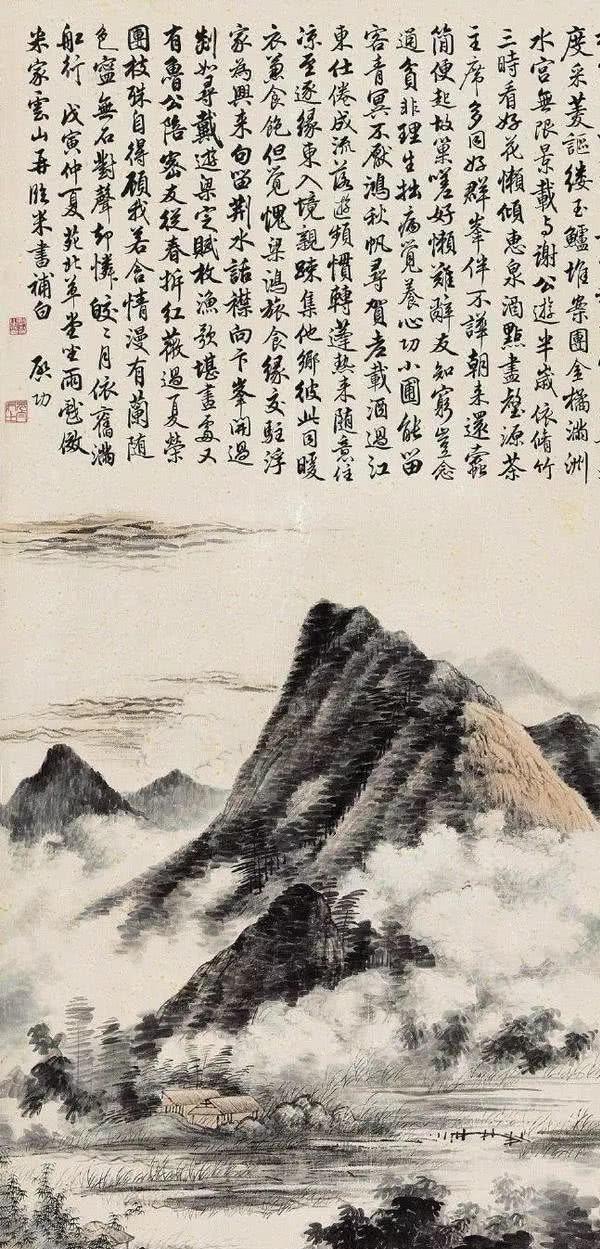 度采菱謳縷玉鱸堆案團金橘滿洲
水宮無限景載与謝公遊半歲依脩竹
三時看好花懶傾惠泉酒點盡壑源茶
主席多同好群峯伴不譁朝来還蠹
簡便起故巢嗟好懶難辭友知窮豈念
通貧非理生拙病覺養心功小圃能留
客青冥不厭鴻秋帆尋賀老載酒過江
東仕倦成流落遊頻慣轉蓬熱来随意住
凉至逐緣東入境親疎集他鄉彼此同暖
衣兼食飽但覺愧梁鴻旅食緣交駐浮
家為興来句留荆水話襟向卞峯開過
剡如尋戴遊梁定賦枚漁歌堪畫處又
有魯公陪密友從春拆紅薇過夏榮
團枝殊自得顧我若含情漫有蘭随
色寧無石對聲却憐皎〻月依舊滿
船行 戊寅仲夏苑北草堂坐雨戲倣
米家雲山再臨米書補白 啟功